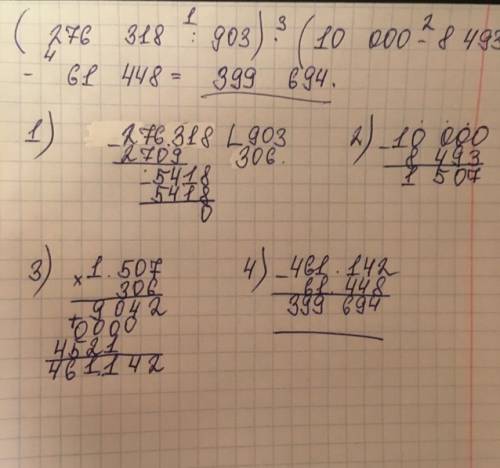 (276 318 : 903) · (10 000 - 8 493
1 3 2
4
- 61 448 = 399 694.
1) - 276.318 903
2709 306.
- 5418
5418
0
2) - 10 000
8 493
1 507
3) x 1.507
306
+ 9042
0000
4521
461142
4) - 461.142
61.448
399 694